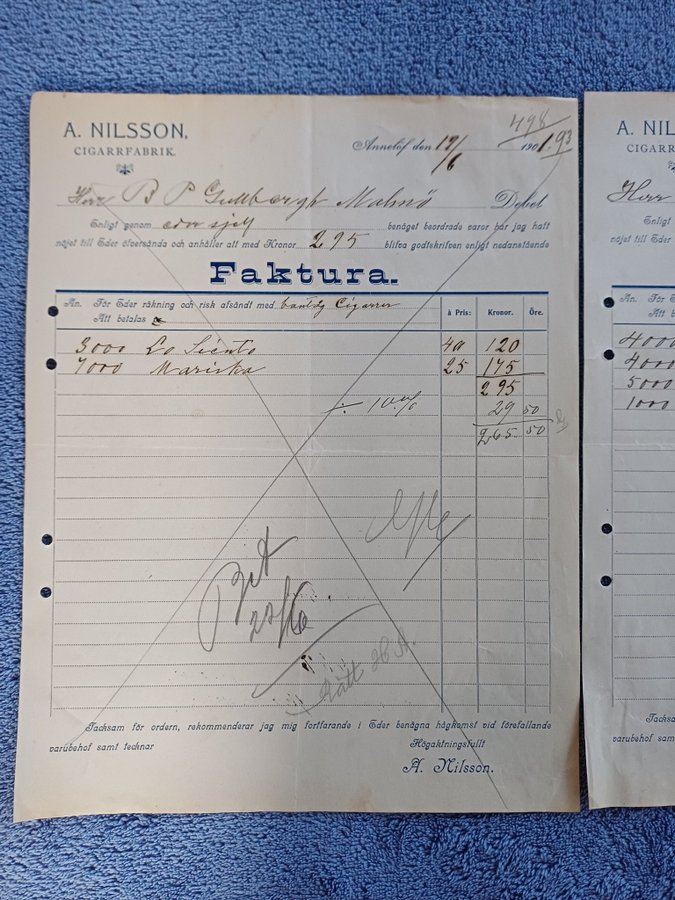 A. NILSSON,
CIGARRFABRIK.
498
Annelöf den 19/6 1901. 93
Herr B P Gullbergh Malmö Debet
Enligt genom eder sjelf benäget beordrade varor har jag haft
nöjet till Eder öfversända och anhåller att med Kronor 295 blifva godtskrifven enligt nedanstående
Faktura.
An. För Eder räkning och risk afsändt med Cigarrer à Pris: Kronor. Öre.
Att betalas
3000 Lo Siento 40 120
7000 Mariska 25 175
295
÷ 10% 29 50
265 50
Bet
20/6
Rätt
Tacksam för ordern, rekommenderar jag mig fortfarande i Eder benägna hågkomst vid förefallande
varubehof samt tecknar Högaktningsfullt
A. Nilsson.
A. NIL
CIGARRF
Herr
Enligt
nöjet till Eder
An. För E
Att b
4000
4000
5000
1000
Tacksa
varubehof sam